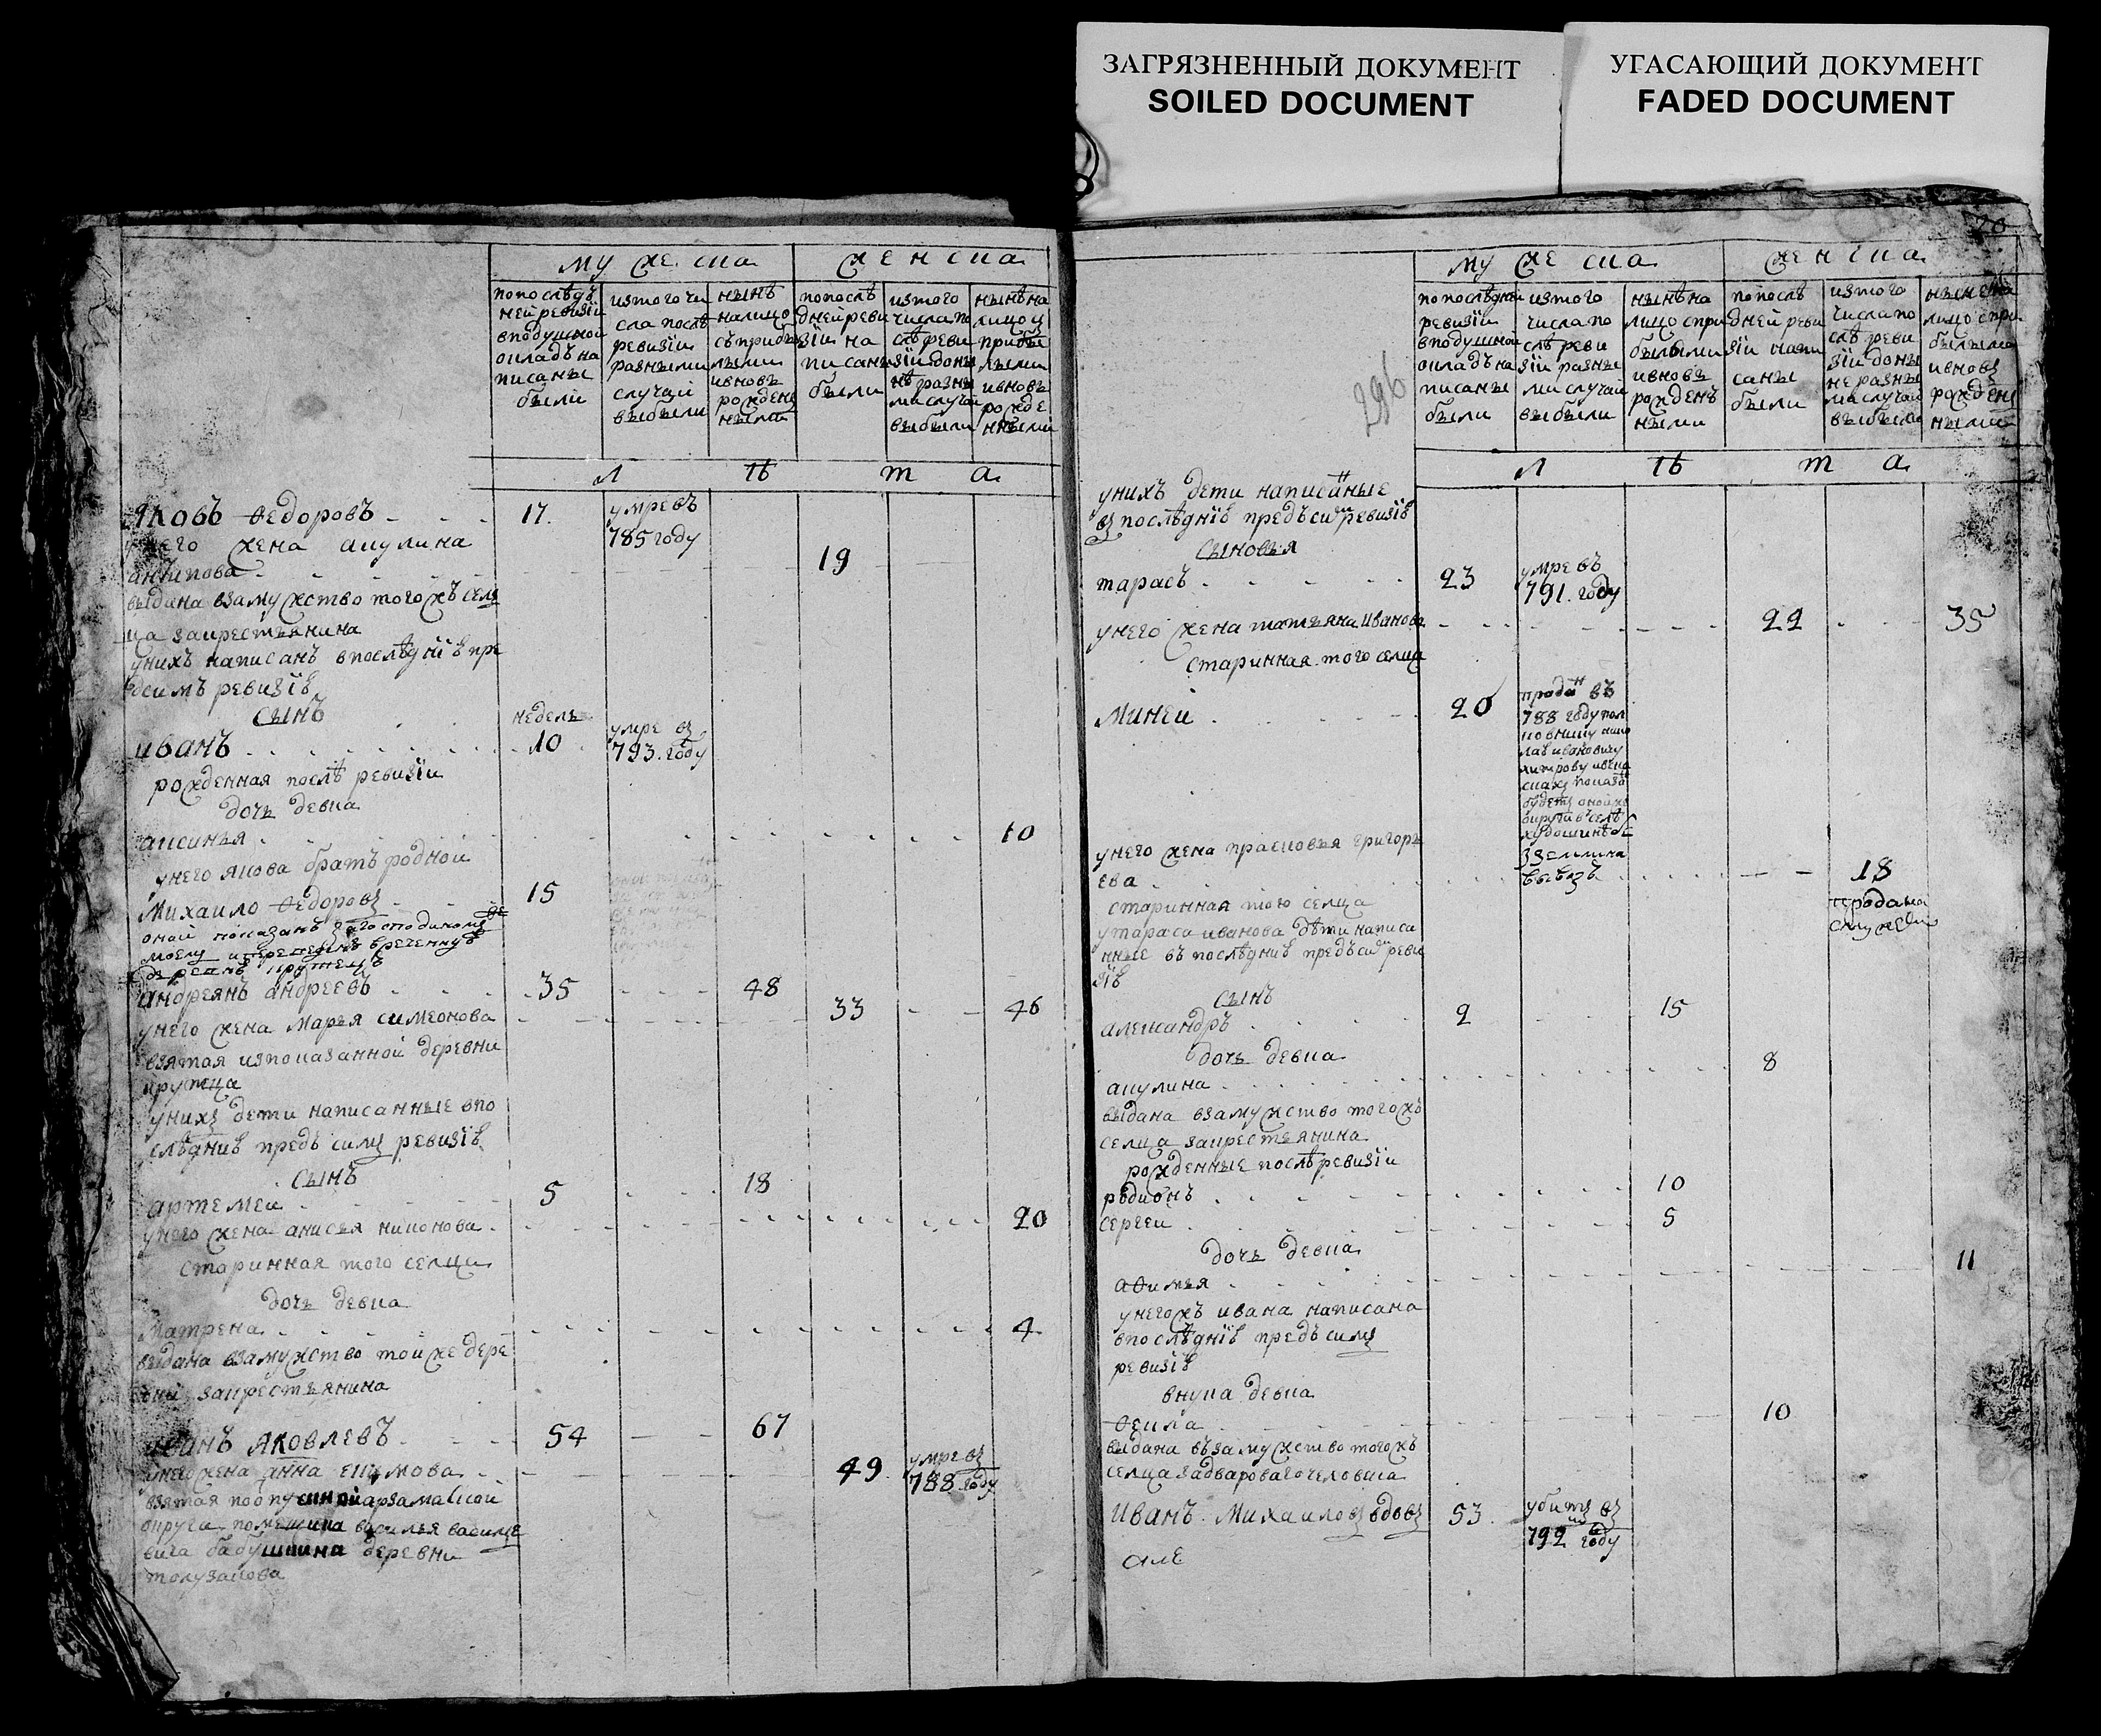 ЗАГРЯЗНЕННЫЙ ДОКУМЕНТ
SOILED DOCUMENT
УГАСАЮЩИЙ ДОКУМЕНТ
FADED DOCUMENT
мужеска женска
попослѣдъ
ней ревизiи
вподушной
окладъ на
писаны
были
изтого чи
сла послѣ
ревизiи
разными
случаи
выбыли
нынѣ
налицо
съ прибы
лыми
ивновъ
рожден
ными
попослѣ
дней реви
зiи на
писаны
были
изтого
числа по
слѣ реви
зiи доны
нѣ разны
ми случаи
выбыли
нынѣ на
лицо ц
прибы
лыми
ивновъ
рожде
нными
л ѣ т а
Яковъ Ѳедоровъ 17. умре въ
785 году
у него жена акулина
антипова 19
выдана взамужство того жъ селц
ца за крестьянина
у нихъ написанъ в послѣднiѣ пре
дсимъ ревизiѣ
сынъ
недель
иванъ 10 умре въ
793. году
рожденная послѣ ревизiи
дочь девка
аксинья 10
у него якова братъ родной
Михаило Ѳедоровъ 15
оной показанъ
андреянъ андреевъ 35 48
у него жена марья симеонова 33 46
взятая изпоказанной деревни
крутца
у нихъ дети написанные впо
слѣднiѣ предъ симъ ревизiѣ
сынъ
артемеи 5 18
у него жена анисья никонова 20
старинная того селца
дочь девка
матрена 4
выдана взамужство той же дере
вни за крестьянина
иванъ Яковлевъ 54 67
у него жена анна екимова 49 умре въ
788 году
взятая по опускной арзамаской
округи помещика василья василье
вича бабушкина деревни
20
296
мужеска женска
попослѣдней
ревизiи
вподушной
окладъ на
писаны
были
изтого
числа по
слѣ реви
зiи разны
ми случаи
выбыли
нынѣ на
лицо спри
былыми
ивновъ
рожденъ
ными
попослѣ
дней реви
зiи напи
саны
были
изтого
числа по
слѣ реви
зiи доны
не разны
ми случаи
выбыли
нынѣ на
лицо спри
былыми
ивновъ
рожден
ными
л ѣ т а
у нихъ дети написанные
въ послѣднiѣ предъ симъ ревизiѣ
сыновья
тарасъ 23 умре въ
791. году
у него жена татьяна иванова 22 35
старинная того селца
минеи 20 проданъ въ
788 году пол
ковнику нико
лаѣ ивановичу
у него жена прасковья григорь
ева 18
продана
с мужем
старинная того селца
у тараса иванова дѣти написа
нные въ послѣднiѣ предъ симъ реви
зiѣ
сынъ
александръ 2 15
дочь девка
акулина 8
выдана взамужство того жъ
селца за крестьянина
рожденные послѣ ревизiи
родионъ 10
сергеи 5
дочь девка
аѳимья 11
у него жъ ивана написана
впослѣднiѣ предъ симъ
ревизiѣ
внука девка
Ѳекла 10
выдана въ замужство того жъ
селца за дворового человека
Иванъ Михаиловъ вдовъ 53. убитъ въ
792 году